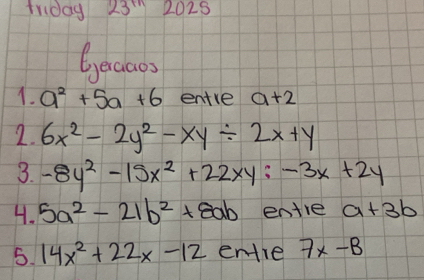 friday 23th 2025
Ejercicios
1. a² + 5a + 6 entre a+2
2. 6x² - 2y² - xy ÷ 2x+y
3. -8y² - 15x² + 22xy : -3x + 2y
4. 5a² - 21b² + 8ab entre a+3b
5. 14x² + 22x - 12 entre 7x - B